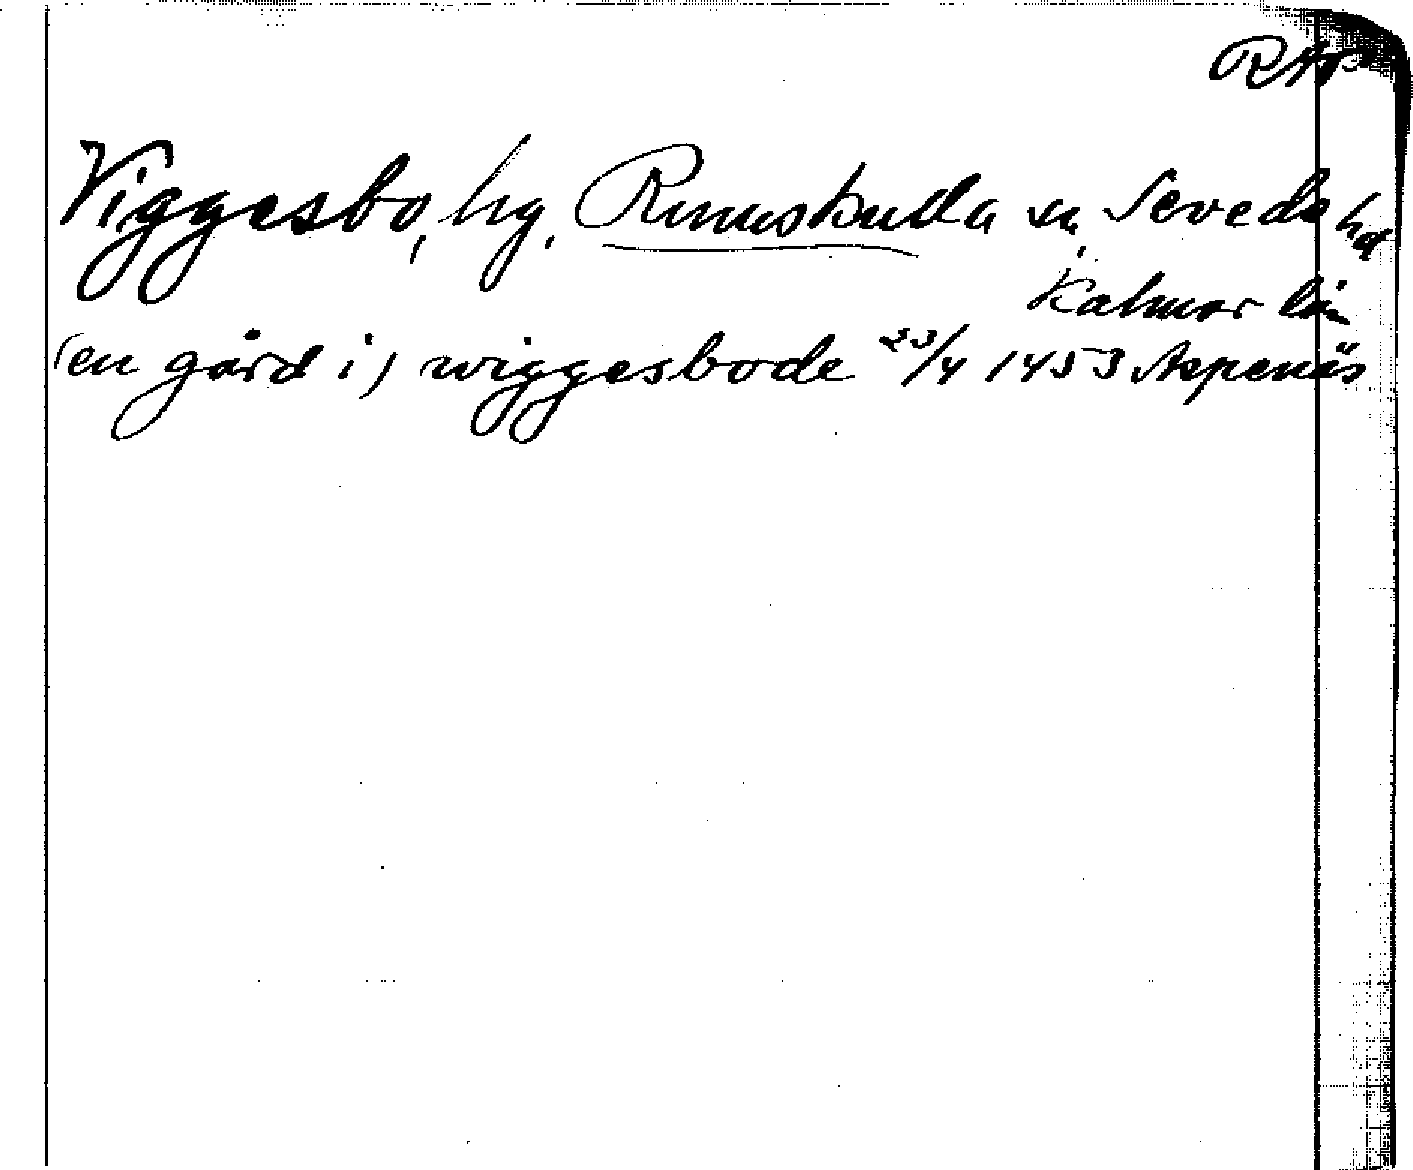 RAp
Viggesbo, hg, Rumskulla sn, Sevede hd
Kalmar län
(en gård i) wiggesbode 23/4 1453 Aspenäs